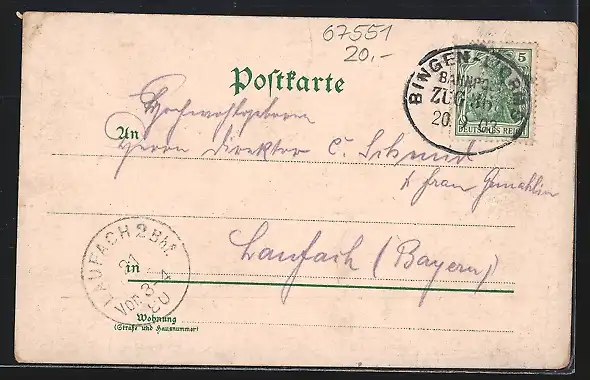 67551
20.-
Postkarte
5
DEUTSCHES REICH
BINGEN
BAHNPO
ZUG
20 9 03
Hochwohlgeboren
An
Herrn Direktor C. Schmid
& Frau Gemahlin
Laufach (Bayern)
in
LAUFACH 2 Bhf.
21
Vor. 3-4
Wohnung
(Straße und Hausnummer)